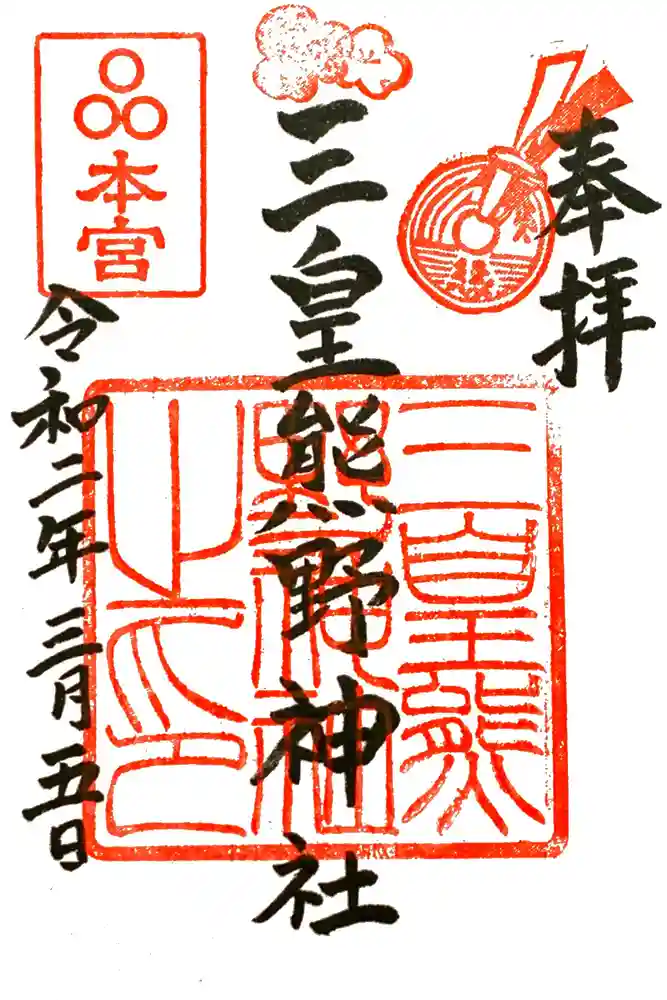 奉拝
三皇熊野神社
本宮
令和二年三月五日
三皇熊
野神社
之印